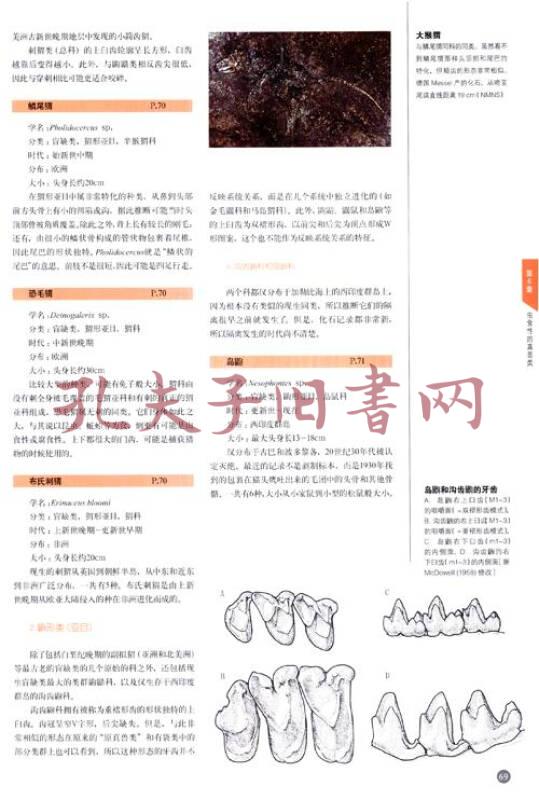 美洲古新世晚期地层中发现的小筒齿猬。
刺猬类(总科)的上臼齿轮廓呈长方形,臼齿
越靠后变得越小。此外,与鼩鼱类相反齿尖很低,
因此与穿刺相比可能更适合咬碎。
鳞尾猬 P.70
学名:Pholidocercus sp.
分类:盲缺类,猬形亚目,半猴猬科
时代:始新世中期
分布:欧洲
大小:头身长约20cm
在猬形亚目中属非常特化的种类。从鼻到头部
前方头骨上有小的凹陷或沟,据此推断可能当时头
顶部曾被角质覆盖。除此之外,背上长有较长的刚毛;
还有,由很小的鳞状骨构成的管状物包裹着尾椎,
因此尾巴的形状独特。Pholidocercus就是“鳞状的
尾巴”的意思。前肢不是很短,因此可能是四足行走。
恐毛猬 P.70
学名:Deinogalerix sp.
分类:盲缺类,猬形亚目,猬科
时代:中新世晚期
分布:欧洲
大小:头身长约30cm
比较大型的种类,可能有兔子般大小。猬科由
没有刺全身被毛覆盖的毛猬亚科和有刺的真正的猬
亚科组成,恐毛猬属无刺的同类。它们身体如此之
大,与其说以昆虫、蚯蚓等为食,倒更有可能是肉
食性或腐食性。上下都很大的门齿,可能是捕获猎
物的时候使用的。
布氏刺猬 P.70
学名:Erinaceus bloomi
分类:盲缺类,猬形亚目,猬科
时代:上新世晚期—更新世早期
分布:非洲
大小:头身长约20cm
现生的刺猬从英国到朝鲜半岛,从中东和近东
到非洲广泛分布,一共有5种。布氏刺猬是由上新
世晚期从欧亚大陆侵入的种在非洲进化而成的。
2.鼩形类(亚目)
除了包括白垩纪晚期的副猬猬(亚洲和北美洲)
等最古老的盲缺类的几个原始的科之外,还包括现
生盲缺类最大的类群鼩鼱科,以及仅生存于西印度
群岛的沟齿鼩科。
沟齿鼩科拥有被称为重楔形齿的形状独特的上
臼齿。齿冠呈窄V字形,后尖缺失。但是,与此非
常相似的形态在原来的“原真兽类”和有袋类中的
部分类群上也可以看到,所以这种形态的牙齿并不
反映系统关系,而是在几个系统中独立进化的(如
金毛鼹科和马岛猬科)。此外,鼩鼱、鼹鼠和岛鼩等
的上臼齿为双楔形齿,以前尖和后尖为顶点形成W
形图案,这个也不能作为反映系统关系的特征。
两个科都仅分布于加勒比海上的西印度群岛上。
因为根本没有类似的现生同类,所以推断它们的隔
离很早之前就发生了。但是,化石记录都非常新,
所以隔离发生的时代尚不清楚。
岛鼩 P.71
学名:Nesophontes sp.
分类:盲缺类,鼩形亚目,岛鼠科
时代:更新世—现在
分布:西印度群岛
大小:最大头身长13—18cm
仅分布于古巴和波多黎各,20世纪30年代被认
定灭绝。最近的记录不是剥制标本,而是1930年找
到的包裹在猫头鹰吐出来的毛团中的头骨和其他骨
骼。一共有6种,大小从小家鼠到小型的松鼠般大小。
大猴猬
与鳞尾猬同科的同类。虽然看不
到鳞尾猬那样头顶部和尾巴的
特化,但颊齿的形态非常相似。
德国 Messel 产的化石。从吻至
尾端直线距离19 cm(NMNS)
第4章
食虫性的真兽类
岛鼩和沟齿鼩的牙齿
A. 岛鼩右上臼齿[M1~3]
的咀嚼面(=双楔形齿模式)。
B. 沟齿鼩的右上臼齿[M1~3]
的咀嚼面(=重楔形齿模式)。
C. 岛鼩右下臼齿[m1~3]
的内侧面。D. 沟齿鼩的右
下臼齿[m1~3]的内侧面(据
McDowell(1958)修改)
A
C
B
D
69
孔夫子旧书网